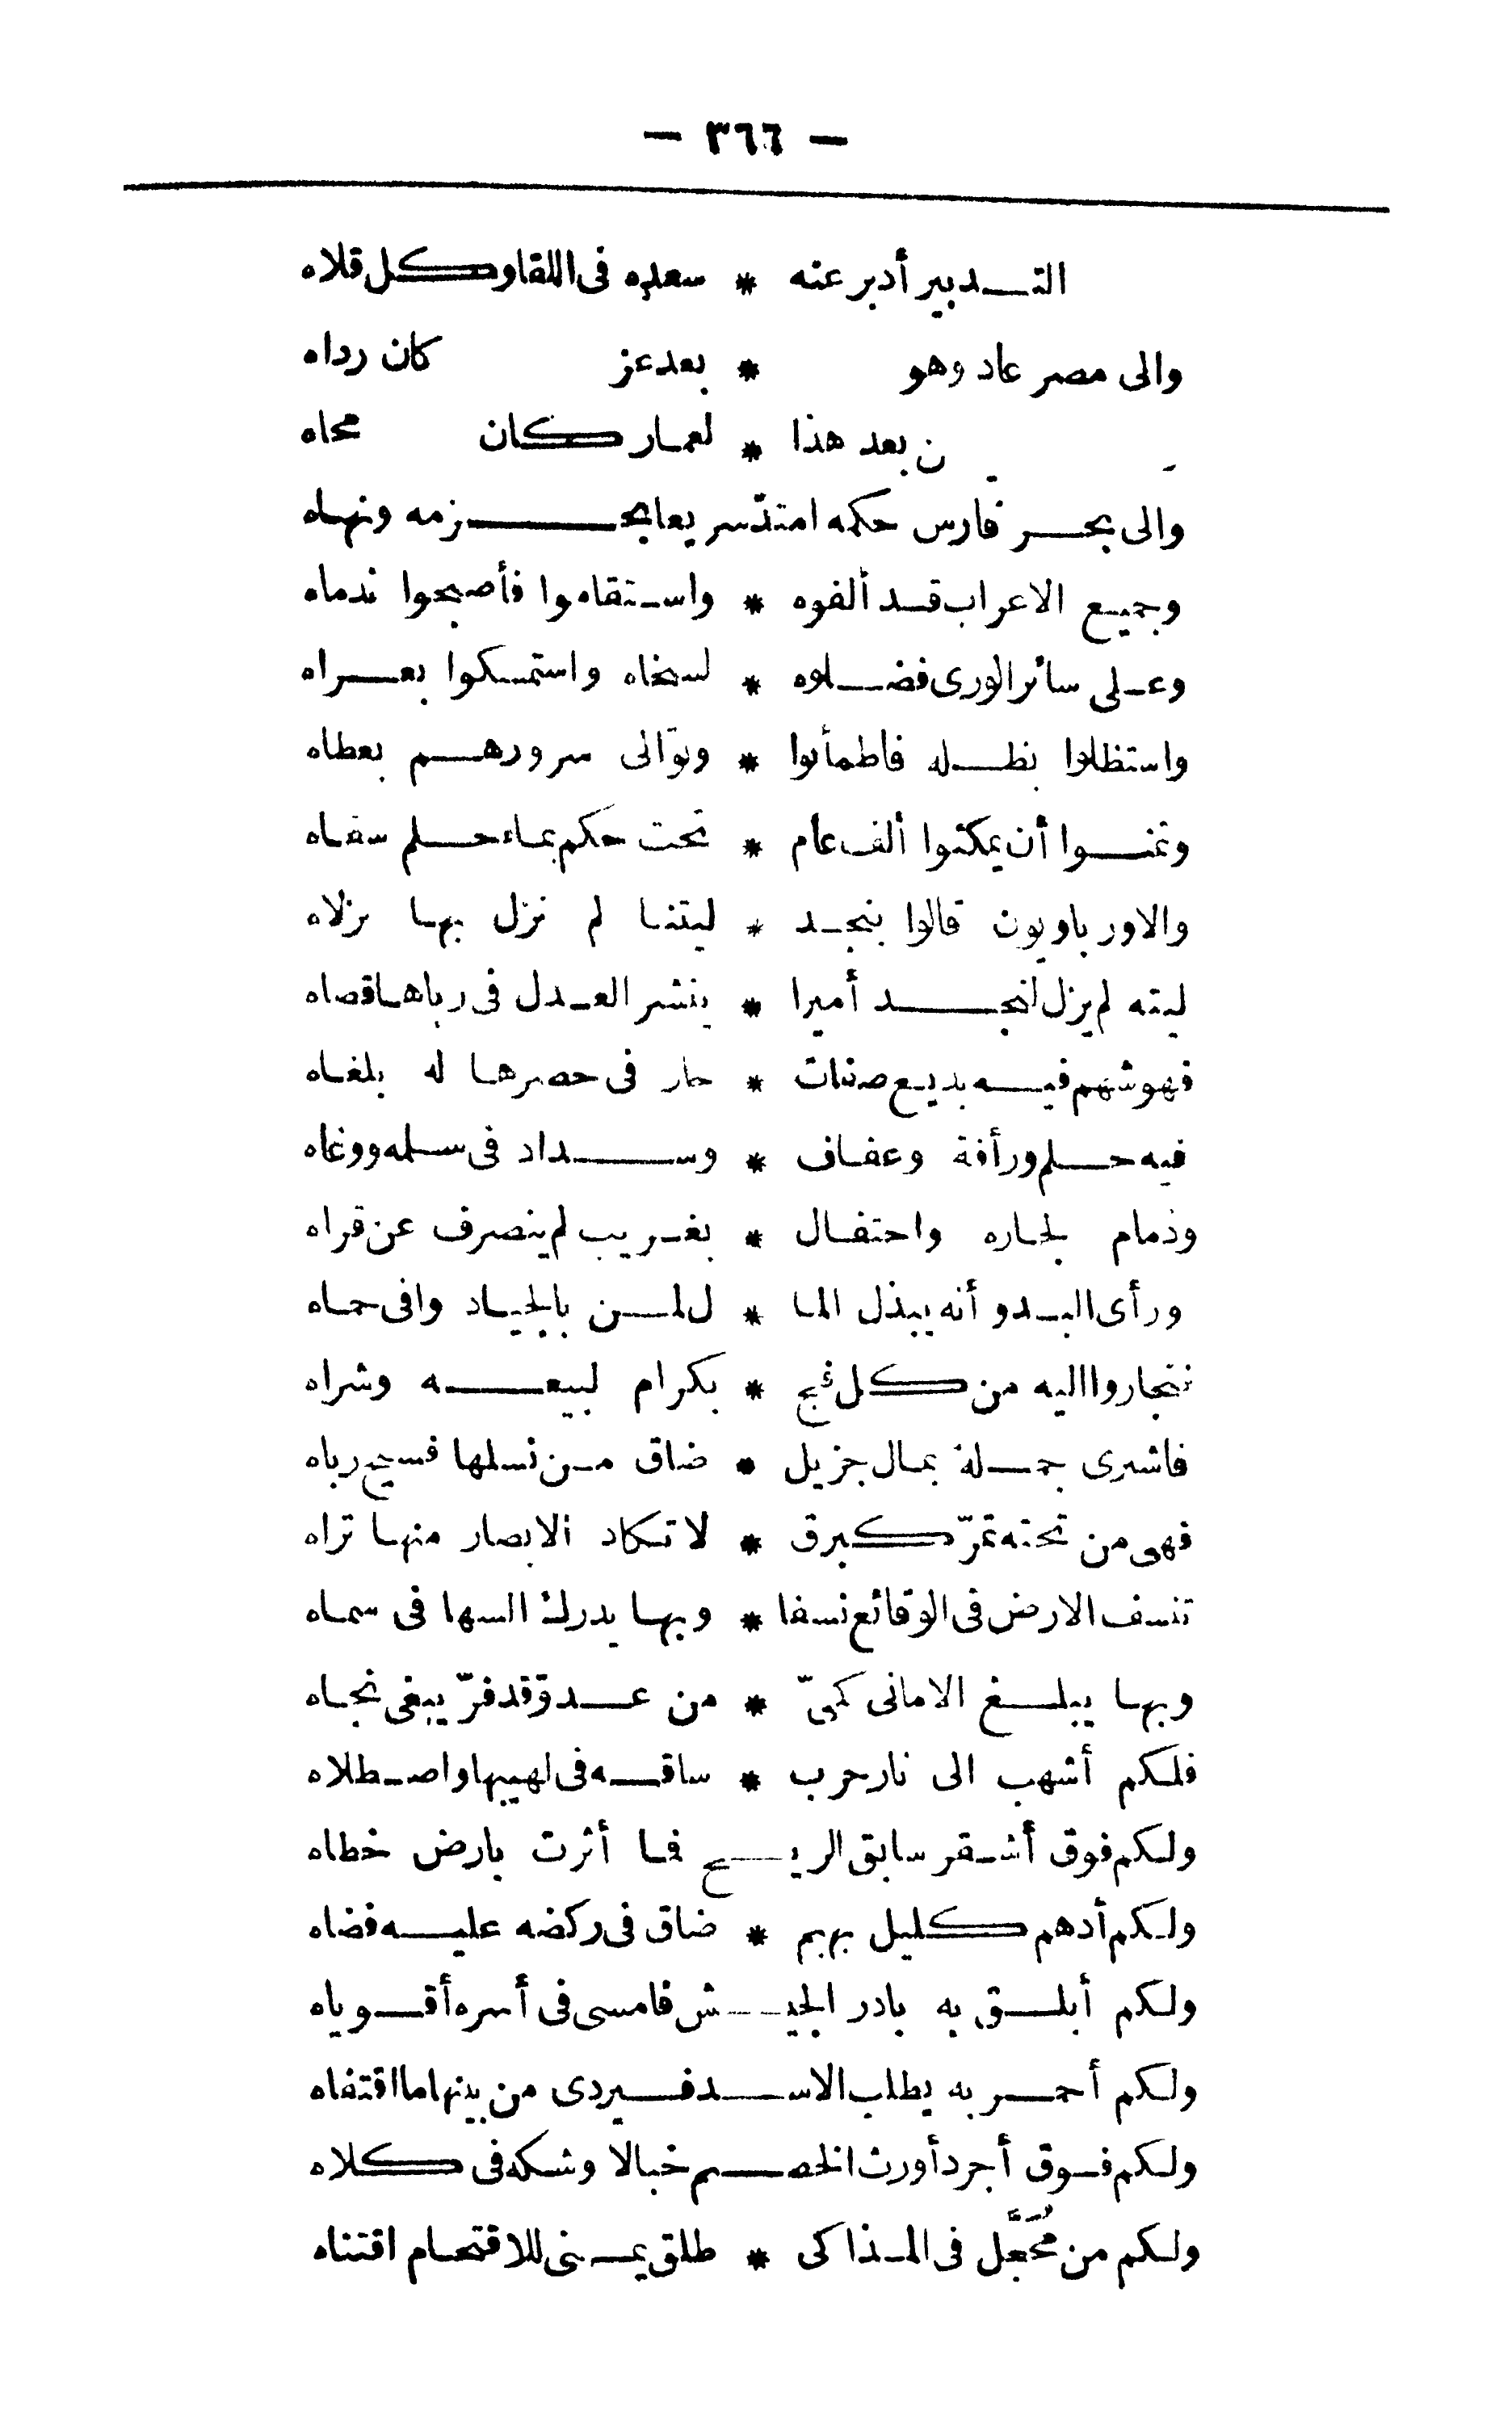 — ٣٦٦ —
التدبير أدبر عنه * سعده فى اللقا وكل قلاه
والى مصر عاد وهو * بعد عز كان رداه
ن بعد هذا * لعمار كان محاه
والى بحر فارس حكمه امتدّ سريعا بحزمه ونهاه
وجميع الاعراب قد ألفوه * واستقاموا فأصبحوا ندماه
وعلى سائر الورى فضلوه * لسخاه واستمسكوا بعراه
واستظلوا بظله فاطمأنوا * وتوالى سرورهم بعطاه
وتمنوا أن يمكثوا ألف عام * تحت حكم بماء حلم سقاه
والاورباويون قالوا بنجد * ليتنا لم نزل بها نزلاه
ليته لم يزل لنجد أميرا * ينشر العدل فى رباها قصاه
فهو شهم فيه بديع صفات * حار فى حصرها له بلغاه
فيه حلم ورأفة وعفاف * وسداد فى سلمه ووغاه
وذمام لجاره واحتفال * بغريب لم ينصرف عن قراه
ورأى البدو أنه يبذل الما * ل لمن بالجياد وافى حماه
فتجاروا اليه من كل فج * بكرام لبيعه وشراه
فاشترى جملة بمال جزيل * ضاق من نسلها فسيح رباه
فهى من تحته تمرّ كبرق * لا تكاد الابصار منها تراه
تنسف الارض فى الوقائع نسفا * وبها يدرك السها فى سماه
وبها يبلغ الامانى كمىّ * من عدوّ قد فرّ يبغى نجاه
فلكم أشهب الى نار حرب * ساقه فى لهيبها واصطلاه
ولكم فوق أشقر سابق الريح فما أثرت بارض خطاه
ولكم أدهم كليل بهيم * ضاق فى ركضه عليه فضاه
ولكم أبلق به بادر الجيش فامسى فى أسره أقوياه
ولكم أحمر به يطلب الاسد فيردى من بينها ما اقتفاه
ولكم فوق أجرد أورث الخصم خبالا وشكه فى كلاه
ولكم من مُحَجَّل فى المذاكى * طلق يمنى للاقتحام اقتناه